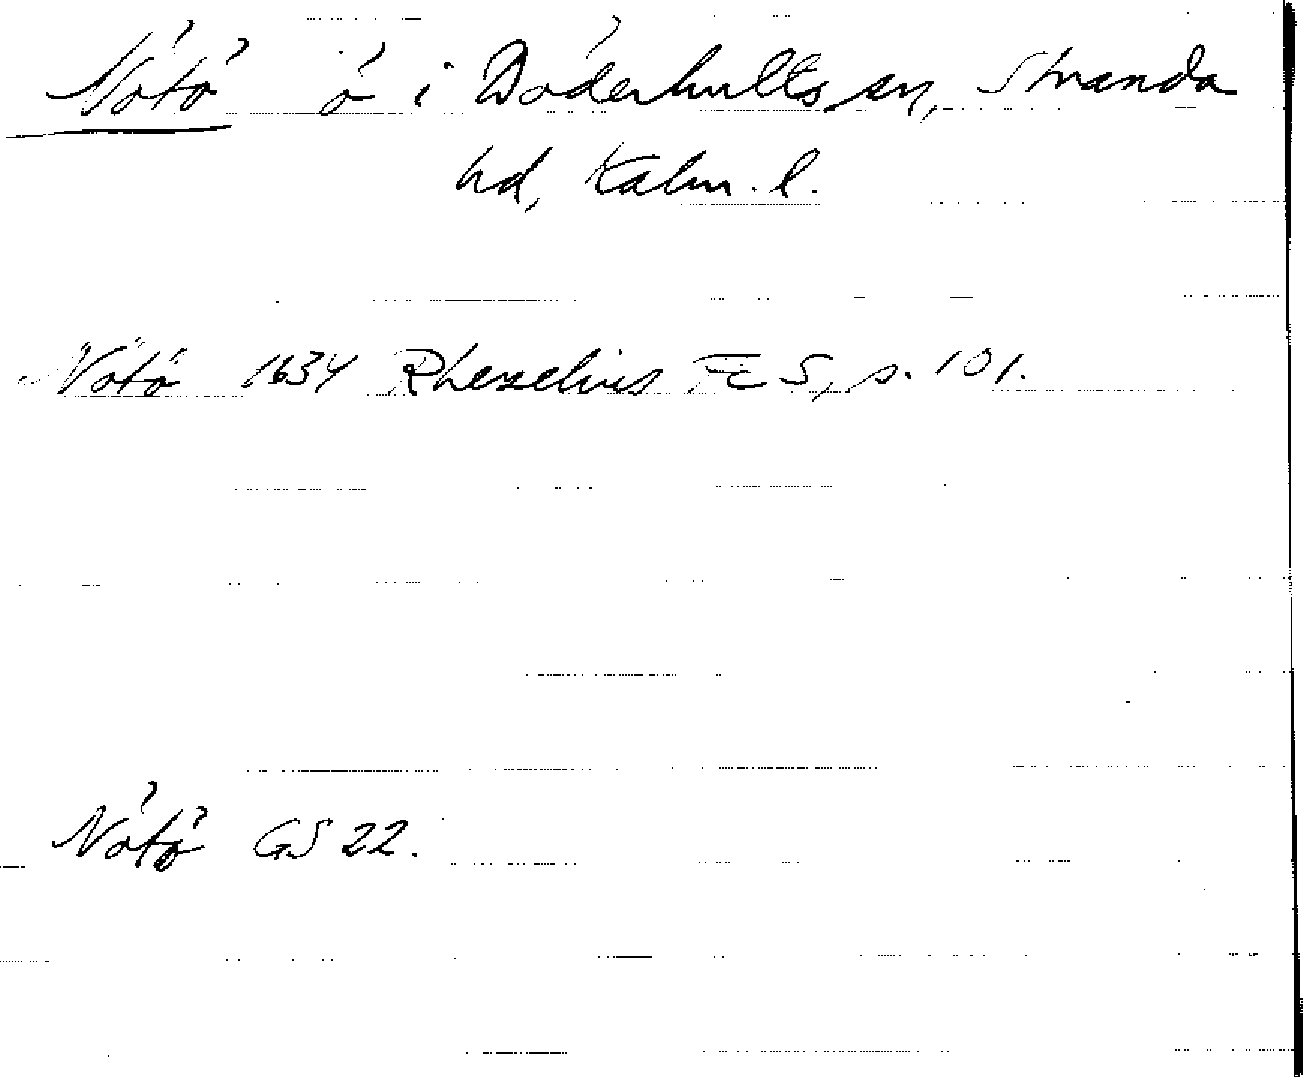 Nötö ö i Döderhults sn, Stranda
hd, Kalm. l.
Nötö 1634 Rhezelius FES, s. 101.
Nötö GS 22.